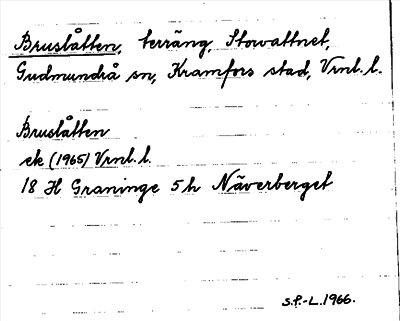 Bruslåtten, terräng, Storvattnet,
Gudmundrå sn, Kramfors stad, Vrnl. l.
Bruslåtten
ek (1965) Vrnl. l.
18 H Graninge 5 h Näverberget
S.P.-L. 1966.